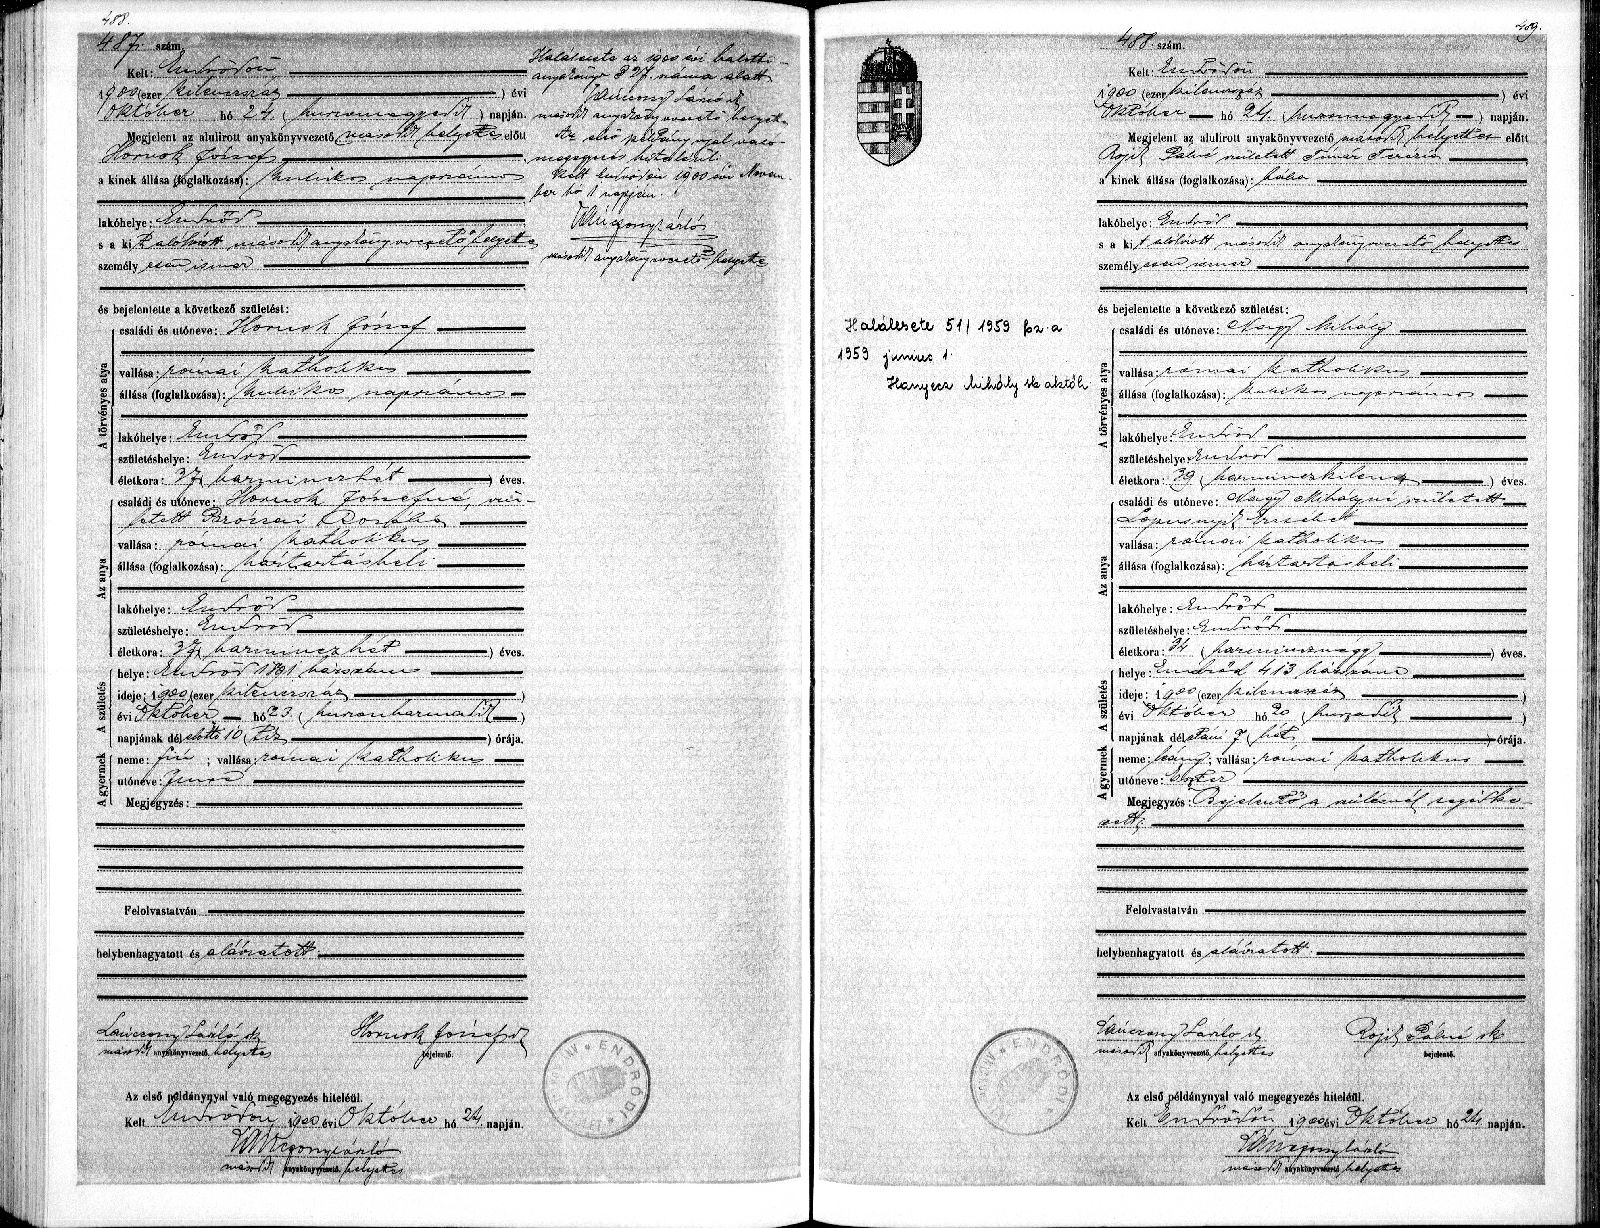 488.
487. szám.
Kelt: Endrődön
1900 (ezer kilenczszáz ) évi
Október hó 24. (huszonnegyedik) napján.
Megjelent az alulirott anyakönyvvezető második helyettes előtt
Hornok József
a kinek állása (foglalkozása): kubikos napszámos
lakóhelye: Endrőd
s a kit alólirott második anyakönyvvezető helyettes
személyesen ismer
és bejelentette a következő születést:
A törvényes atya
családi és utóneve: Hornok József
vallása: római katholikus
állása (foglalkozása): kubikos napszámos
lakóhelye: Endrőd
születéshelye: Endrőd
életkora: 37 (harminczhét ) éves.
Az anya
családi és utóneve: Hornok Józsefné, szü-
letett Rozália
vallása: római katholikus
állása (foglalkozása): háztartásbeli
lakóhelye: Endrőd
születéshelye: Endrőd
életkora: 37 (harminczhét ) éves.
A születés
helye: Endrőd házszám
ideje: 1900 (ezer kilenczszáz )
évi Október hó 23. (huszonharmadik )
napjának délelőtti 10 (tiz ) órája.
A gyermek
neme: fiú ; vallása: római katholikus
utóneve:
Megjegyzés:
Felolvastatván
helybenhagyatott és aláiratott
Lánczony László sk
második anyakönyvvezető. helyettes
Hornok József sk
bejelentő.
Az első példánynyal való megegyezés hiteléül.
Kelt Endrődön 1900 évi Október hó 24. napján.
Lánczony László
második anyakönyvvezető helyettes
Halálesete az 1900 évi halotti
anyakönyv 327. száma alatt
Lánczony László sk
második anyakönyvvezető helyettes
Az első példánynyal való
megegyezés hiteléül.
Kelt Endrődön 1900 évi Novem-
ber hó 1 napján.
Lánczony László
második anyakönyvvezető helyettes
ENDRŐDI
489.
488. szám.
Kelt: Endrődön
1900 (ezer kilenczszáz ) évi
Október hó 24. (huszonnegyedik) napján.
Megjelent az alulirott anyakönyvvezető második helyettes előtt
Rojik Pálné született Timár Terézia
a kinek állása (foglalkozása): bába
lakóhelye: Endrőd
s a kit alólirott második anyakönyvvezető helyettes
személyesen ismer
és bejelentette a következő születést:
A törvényes atya
családi és utóneve: Nagy Mihály
vallása: római katholikus
állása (foglalkozása): kubikos napszámos
lakóhelye: Endrőd
születéshelye: Endrőd
életkora: 39 (harminczkilencz ) éves.
Az anya
családi és utóneve: Nagy Mihályné született
Lapusnyik Erzsébet
vallása: római katholikus
állása (foglalkozása): háztartásbeli
lakóhelye: Endrőd
születéshelye: Endrőd
életkora: 34 (harmincznégy ) éves.
A születés
helye: Endrőd 413 házszám
ideje: 1900 (ezer kilenczszáz )
évi Október hó 20 (huszadik )
napjának délutáni 7 (hét ) órája.
A gyermek
neme: leány; vallása: római katholikus
utóneve: Eszter
Megjegyzés: Bejelentő a szülésnél segédke-
zett;
Felolvastatván
helybenhagyatott és aláiratott.
Lánczony László sk
második anyakönyvvezető. helyettes
Rojik Pálné sk
bejelentő.
Az első példánynyal való megegyezés hiteléül.
Kelt Endrődön 1900 évi Október hó 24. napján.
Lánczony László
második anyakönyvvezető helyettes
Halálesete 51/1959 fsz. a
1959 junius 1.
Hanyecz Mihály sk aktöli
ENDRŐDI